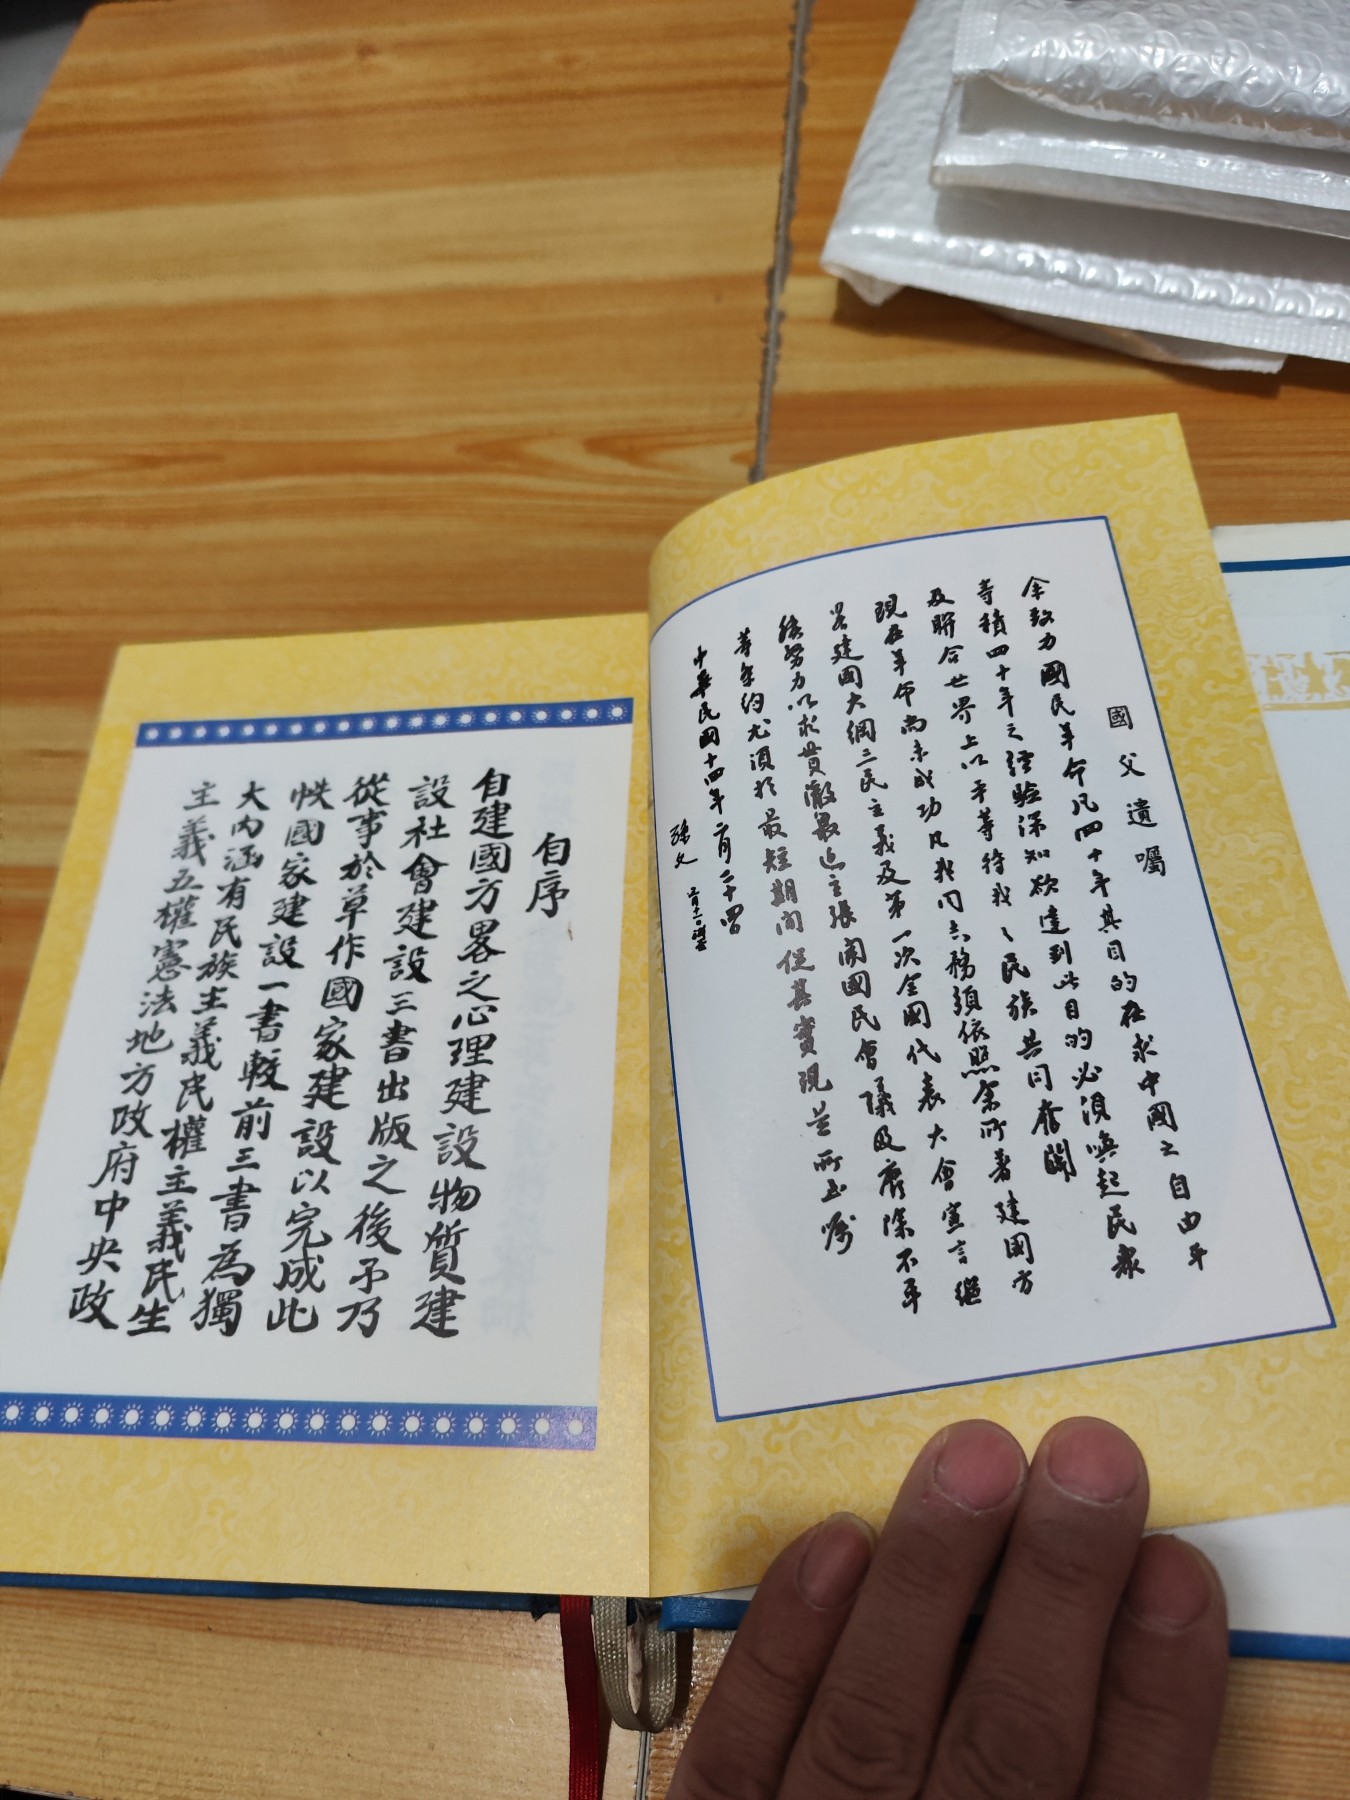 國父遺囑
余致力國民革命凡四十年其目的在求中國之自由平
等積四十年之經驗深知欲達到此目的必須喚起民衆
及聯合世界上以平等待我之民族共同奮鬭
現在革命尚未成功凡我同志務須依照余所著建國方
畧建國大綱三民主義及第一次全國代表大會宣言繼
續努力以求貫徹最近主張開國民會議及廢除不平
等條約尤須於最短期間促其實現是所至囑
中華民國十四年二月二十四日
孫文 三月十一日補簽
自序
自建國方畧之心理建設物質建
設社會建設三書出版之後予乃
從事於草作國家建設以完成此
帙國家建設一書較前三書為獨
大內涵有民族主義民權主義民生
主義五權憲法地方政府中央政